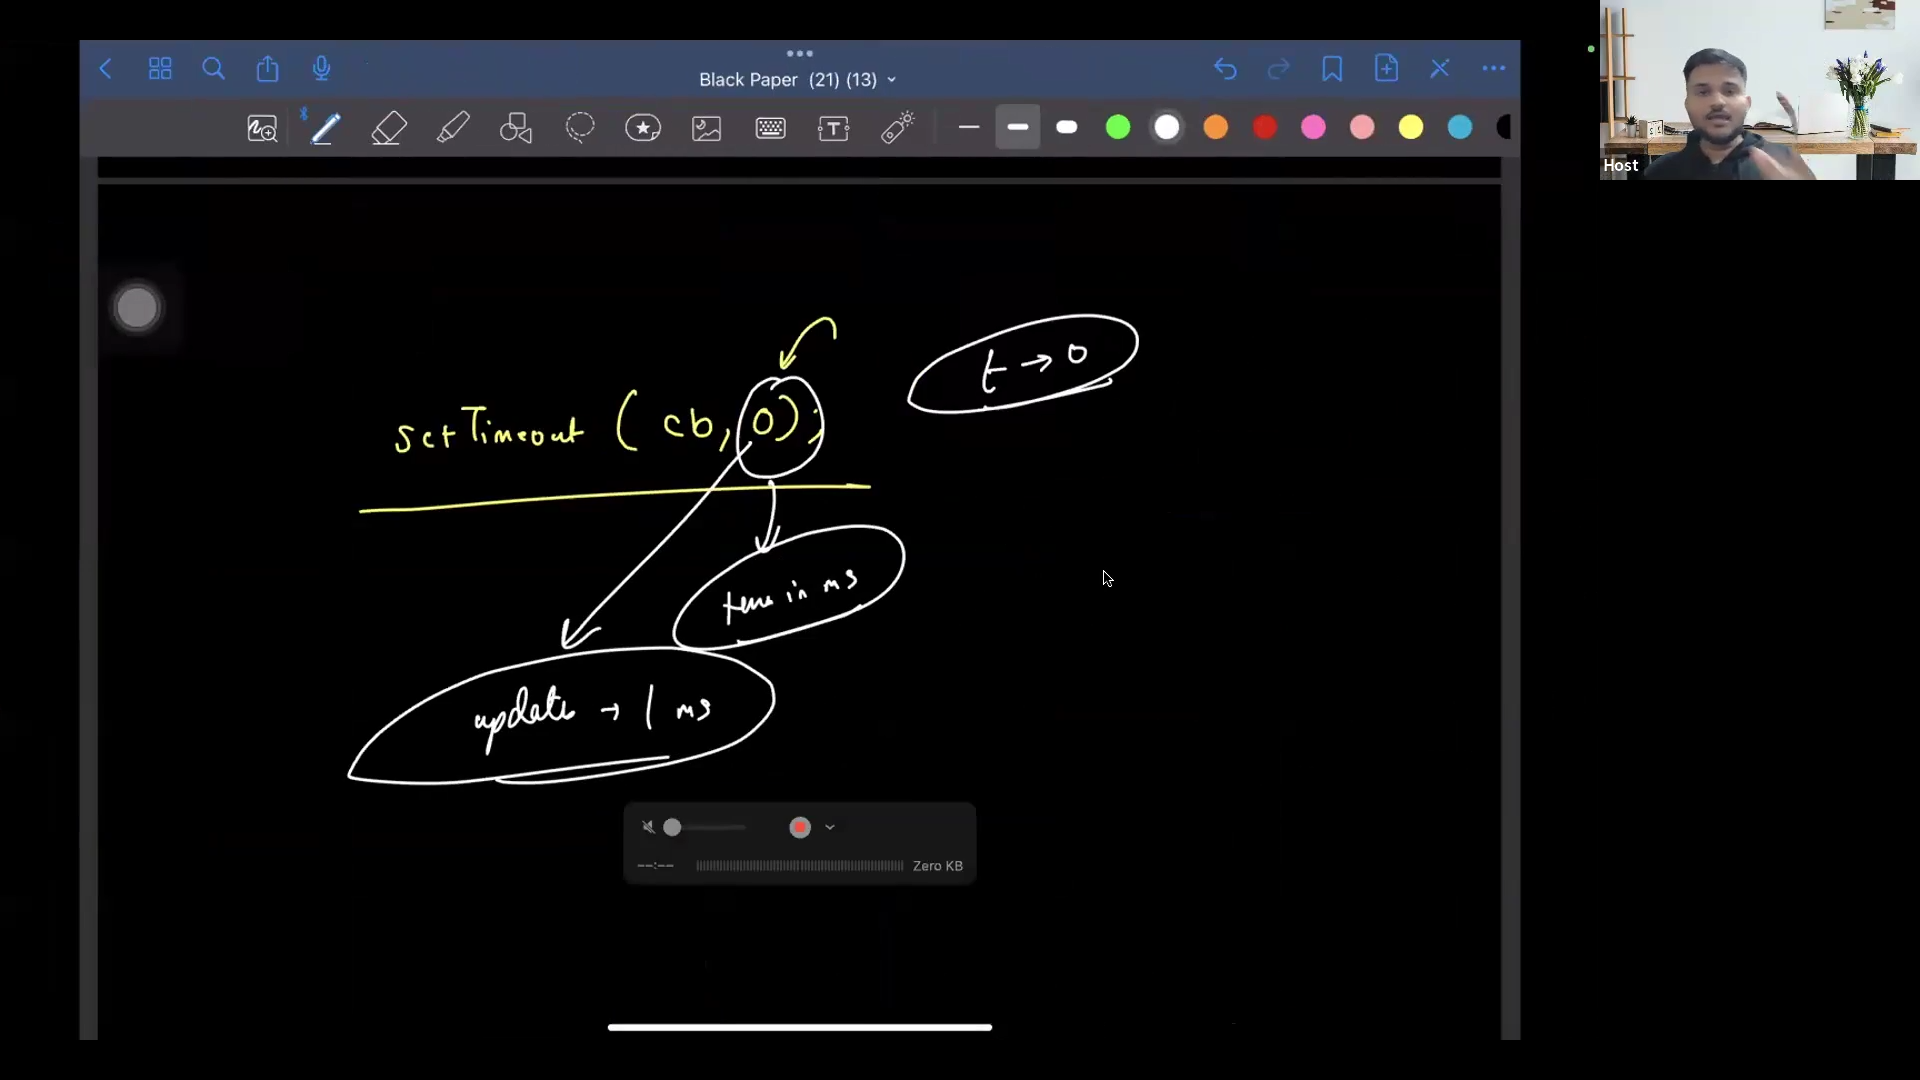 Black Paper (21) (13)
Host
t → 0
setTimeout ( cb, 0);
time in ms
update → 1 ms
--:--
Zero KB